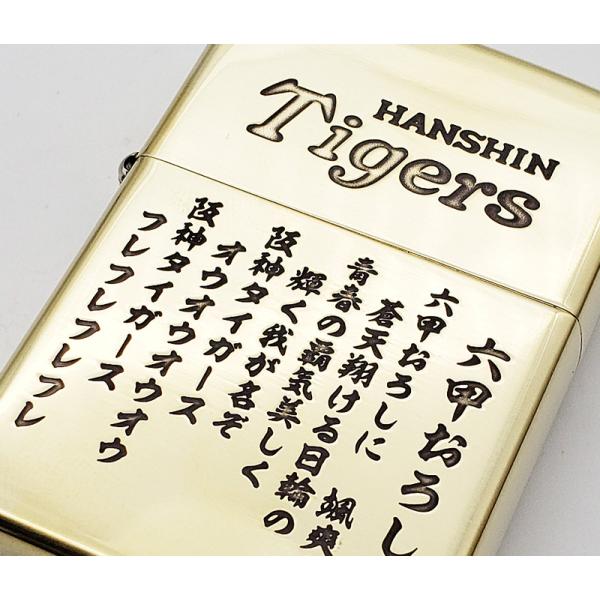 HANSHIN
Tigers
六甲おろし
六甲おろしに 颯爽
蒼天翔ける日輪の
青春の覇気美しく
輝く我が名ぞ
阪神タイガース
オウオウオウオウ
阪神タイガース
フレフレフレフレ